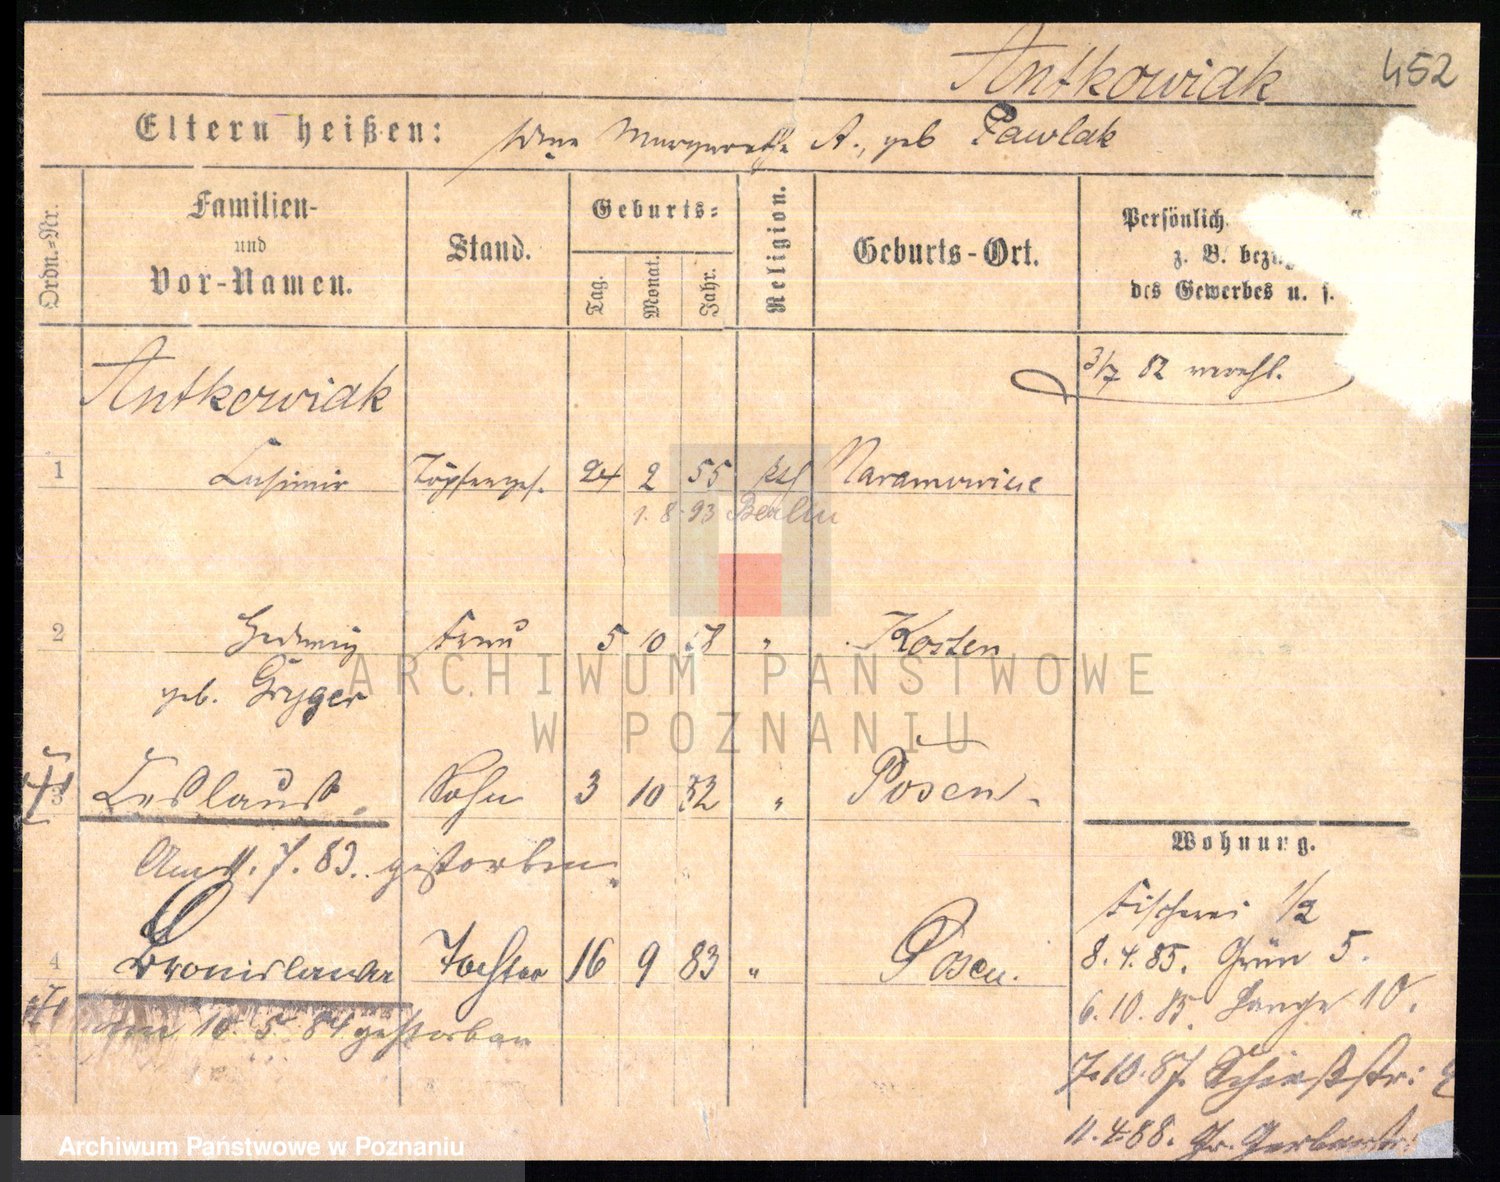 Antkowiak 452
Eltern heißen: Margarethe A., geb Pawlak
Ordn.-Nr.
Familien-
und
Vor-Namen.
Stand.
Geburts-
Tag.
Monat.
Jahr.
Religion.
Geburts-Ort.
Persönlich
z. B. bezüg
des Gewerbes u. s.
3/7 82 verehl.
Antkowiak
1 Casimir Töpferges. 24 2 55 kath Naramowice
1. 8. 93 Berlin
2 Hedwig Frau 5 10 58 " Kosten
geb. Gryger
3 Ceslaus Sohn 3 10 82 " Posen.
Am 11. 7. 83. gestorben.
4 Bronislawa Tochter 16 9 83 " Posen.
am 10. 5. 84 gestorben
Wohnung.
Fischerei 1/2
8. 4. 85. Grün 5.
6. 10. 85. Lange 10.
7. 10. 87. Schießstr:
11. 4. 88. Gr. Gerberstr:
ARCHIWUM PAŃSTWOWE
W POZNANIU
Archiwum Państwowe w Poznaniu